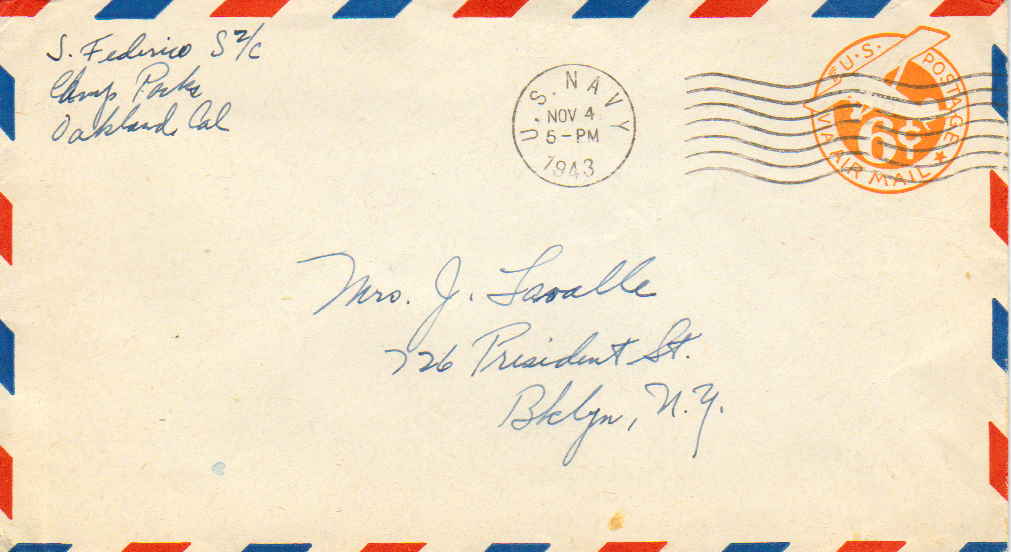 S. Federico S 2/c
Camp Parks
Oakland, Cal
U.S. NAVY
NOV 4
5-PM
1943
U.S. POSTAGE
6¢
VIA AIR MAIL
Mrs. J. Lavalle
726 President St.
Bklyn, N.Y.